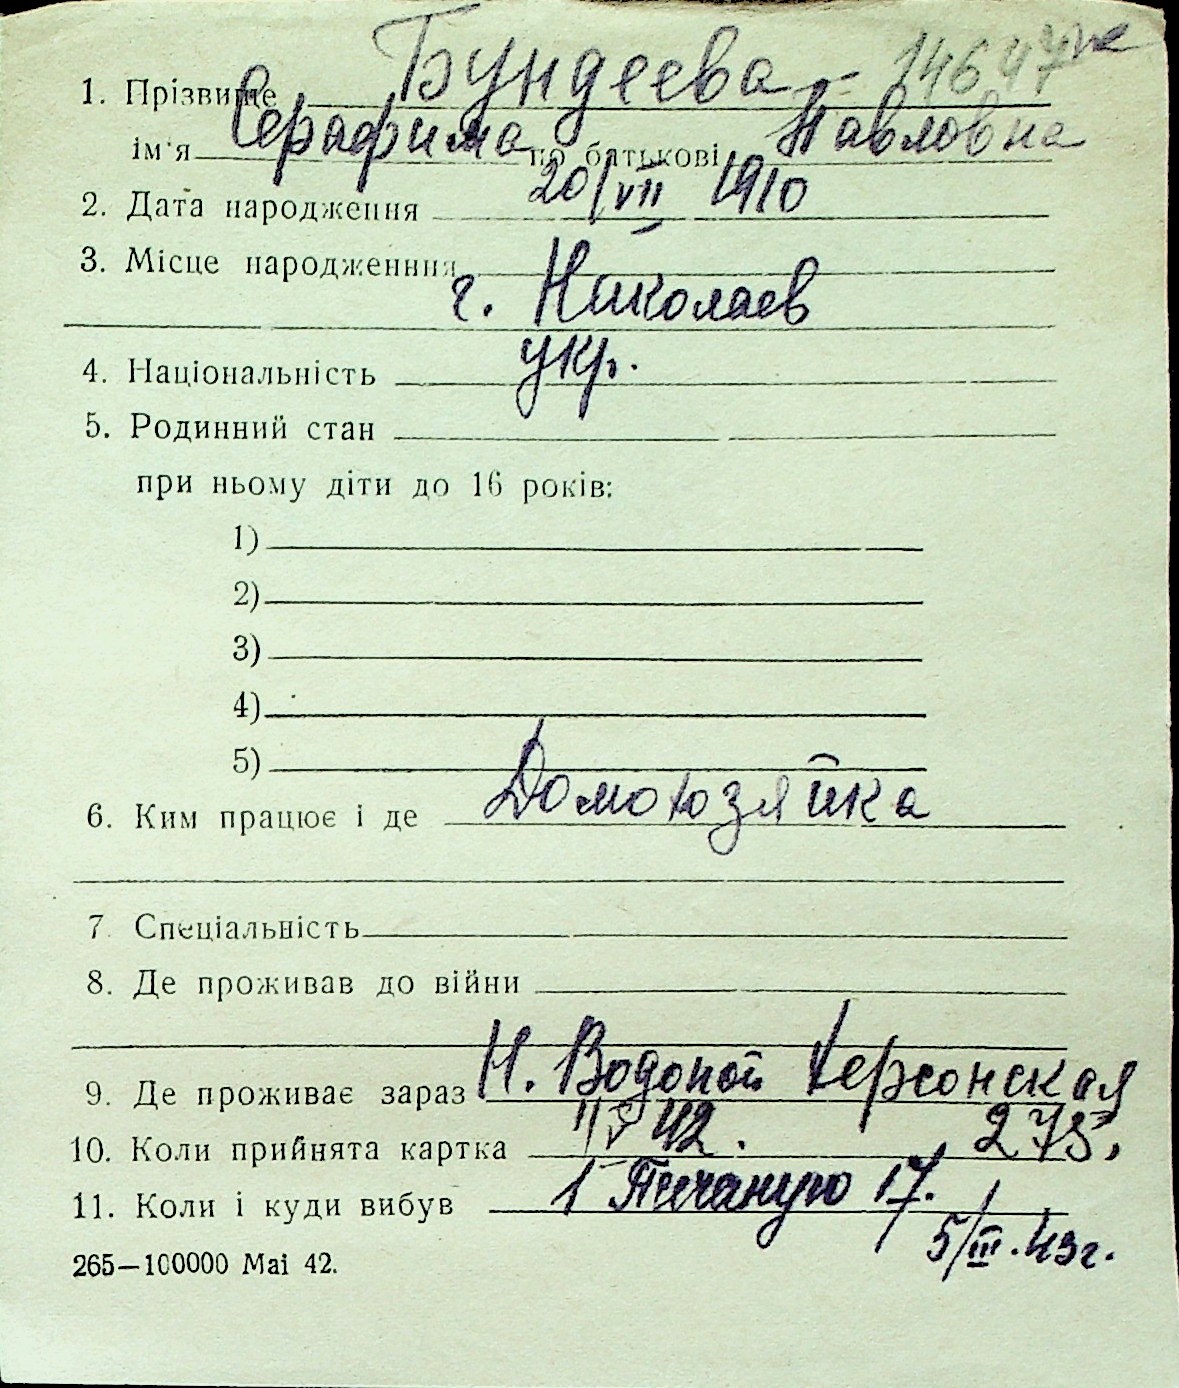 1. Прізвище Бундеева 14647
ім'я Серафима по батькові Павловна
2. Дата народження 20/VII 1910
3. Місце народженння
г. Николаев
4. Національність укр.
5. Родинний стан
при ньому діти до 16 років:
1)
2)
3)
4)
5)
6. Ким працює і де Домохозяйка
7. Спеціальність
8. Де проживав до війни
9. Де проживає зараз Н. Водопой Херсонская
10. Коли прийнята картка 42. 275.
11. Коли і куди вибув 1 Песчаную 17.
5/III.43г.
265—100000 Mai 42.